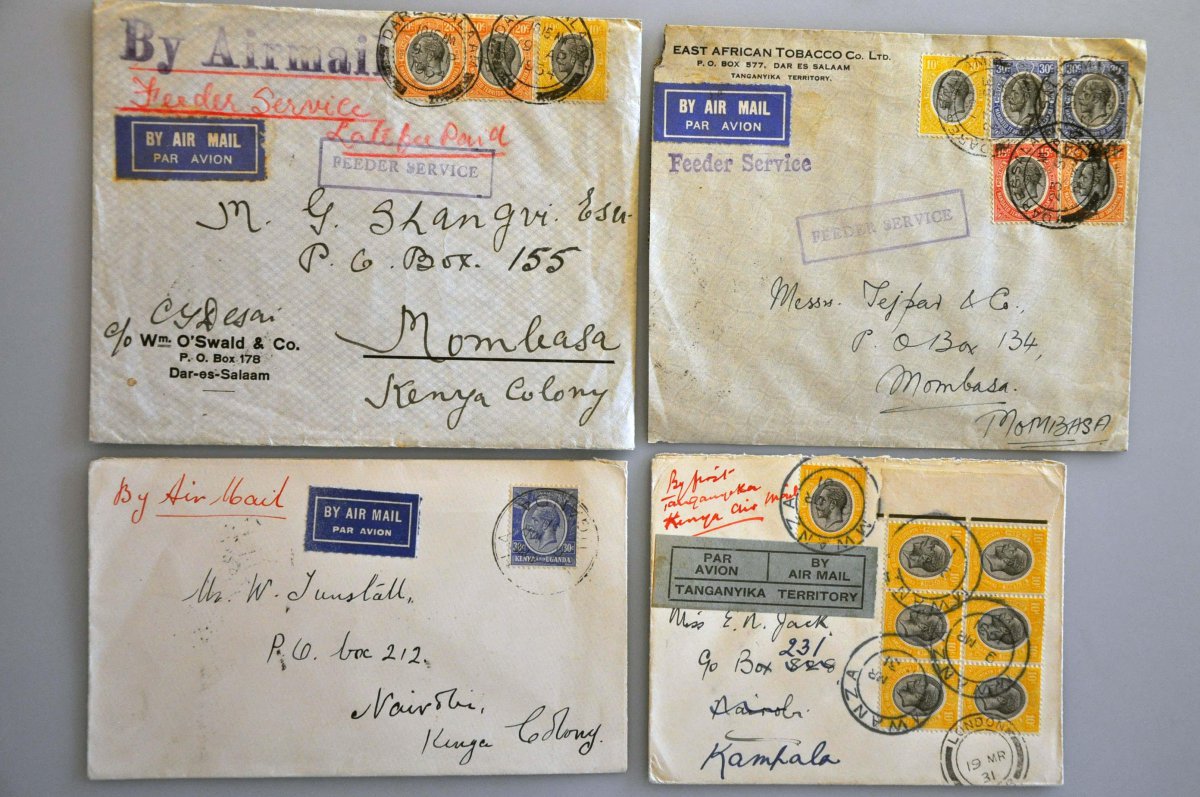 By Airmail
Feeder Service
Late fee Paid
BY AIR MAIL
PAR AVION
FEEDER SERVICE
M. G. Shangvi. Esq.
P. O. Box. 155
Mombasa
Kenya Colony
C Y Desai
c/o Wm. O'Swald & Co.
P. O. Box 178
Dar-es-Salaam
20c 20c 10c
EAST AFRICAN TOBACCO Co. LTD.
P. O. BOX 577, DAR ES SALAAM
TANGANYIKA TERRITORY.
BY AIR MAIL
PAR AVION
Feeder Service
FEEDER SERVICE
10c 30c 30c 30c
15c 15c
Messrs. Tejpar & Co.,
P. O Box 134,
Mombasa.
MOMBASA
By Air Mail
BY AIR MAIL
PAR AVION
30c 30c
KENYA AND UGANDA
Mr. W. Tunstall,
P. O. box 212.
Nairobi,
Kenya Colony.
By first
Tanganyika
Kenya Air Mail
PAR AVION
BY AIR MAIL
TANGANYIKA TERRITORY
MWANZA
Miss E. N. Jack
231
c/o Box
Nairobi
Kampala
MWANZA
LONDON
19 MR
31